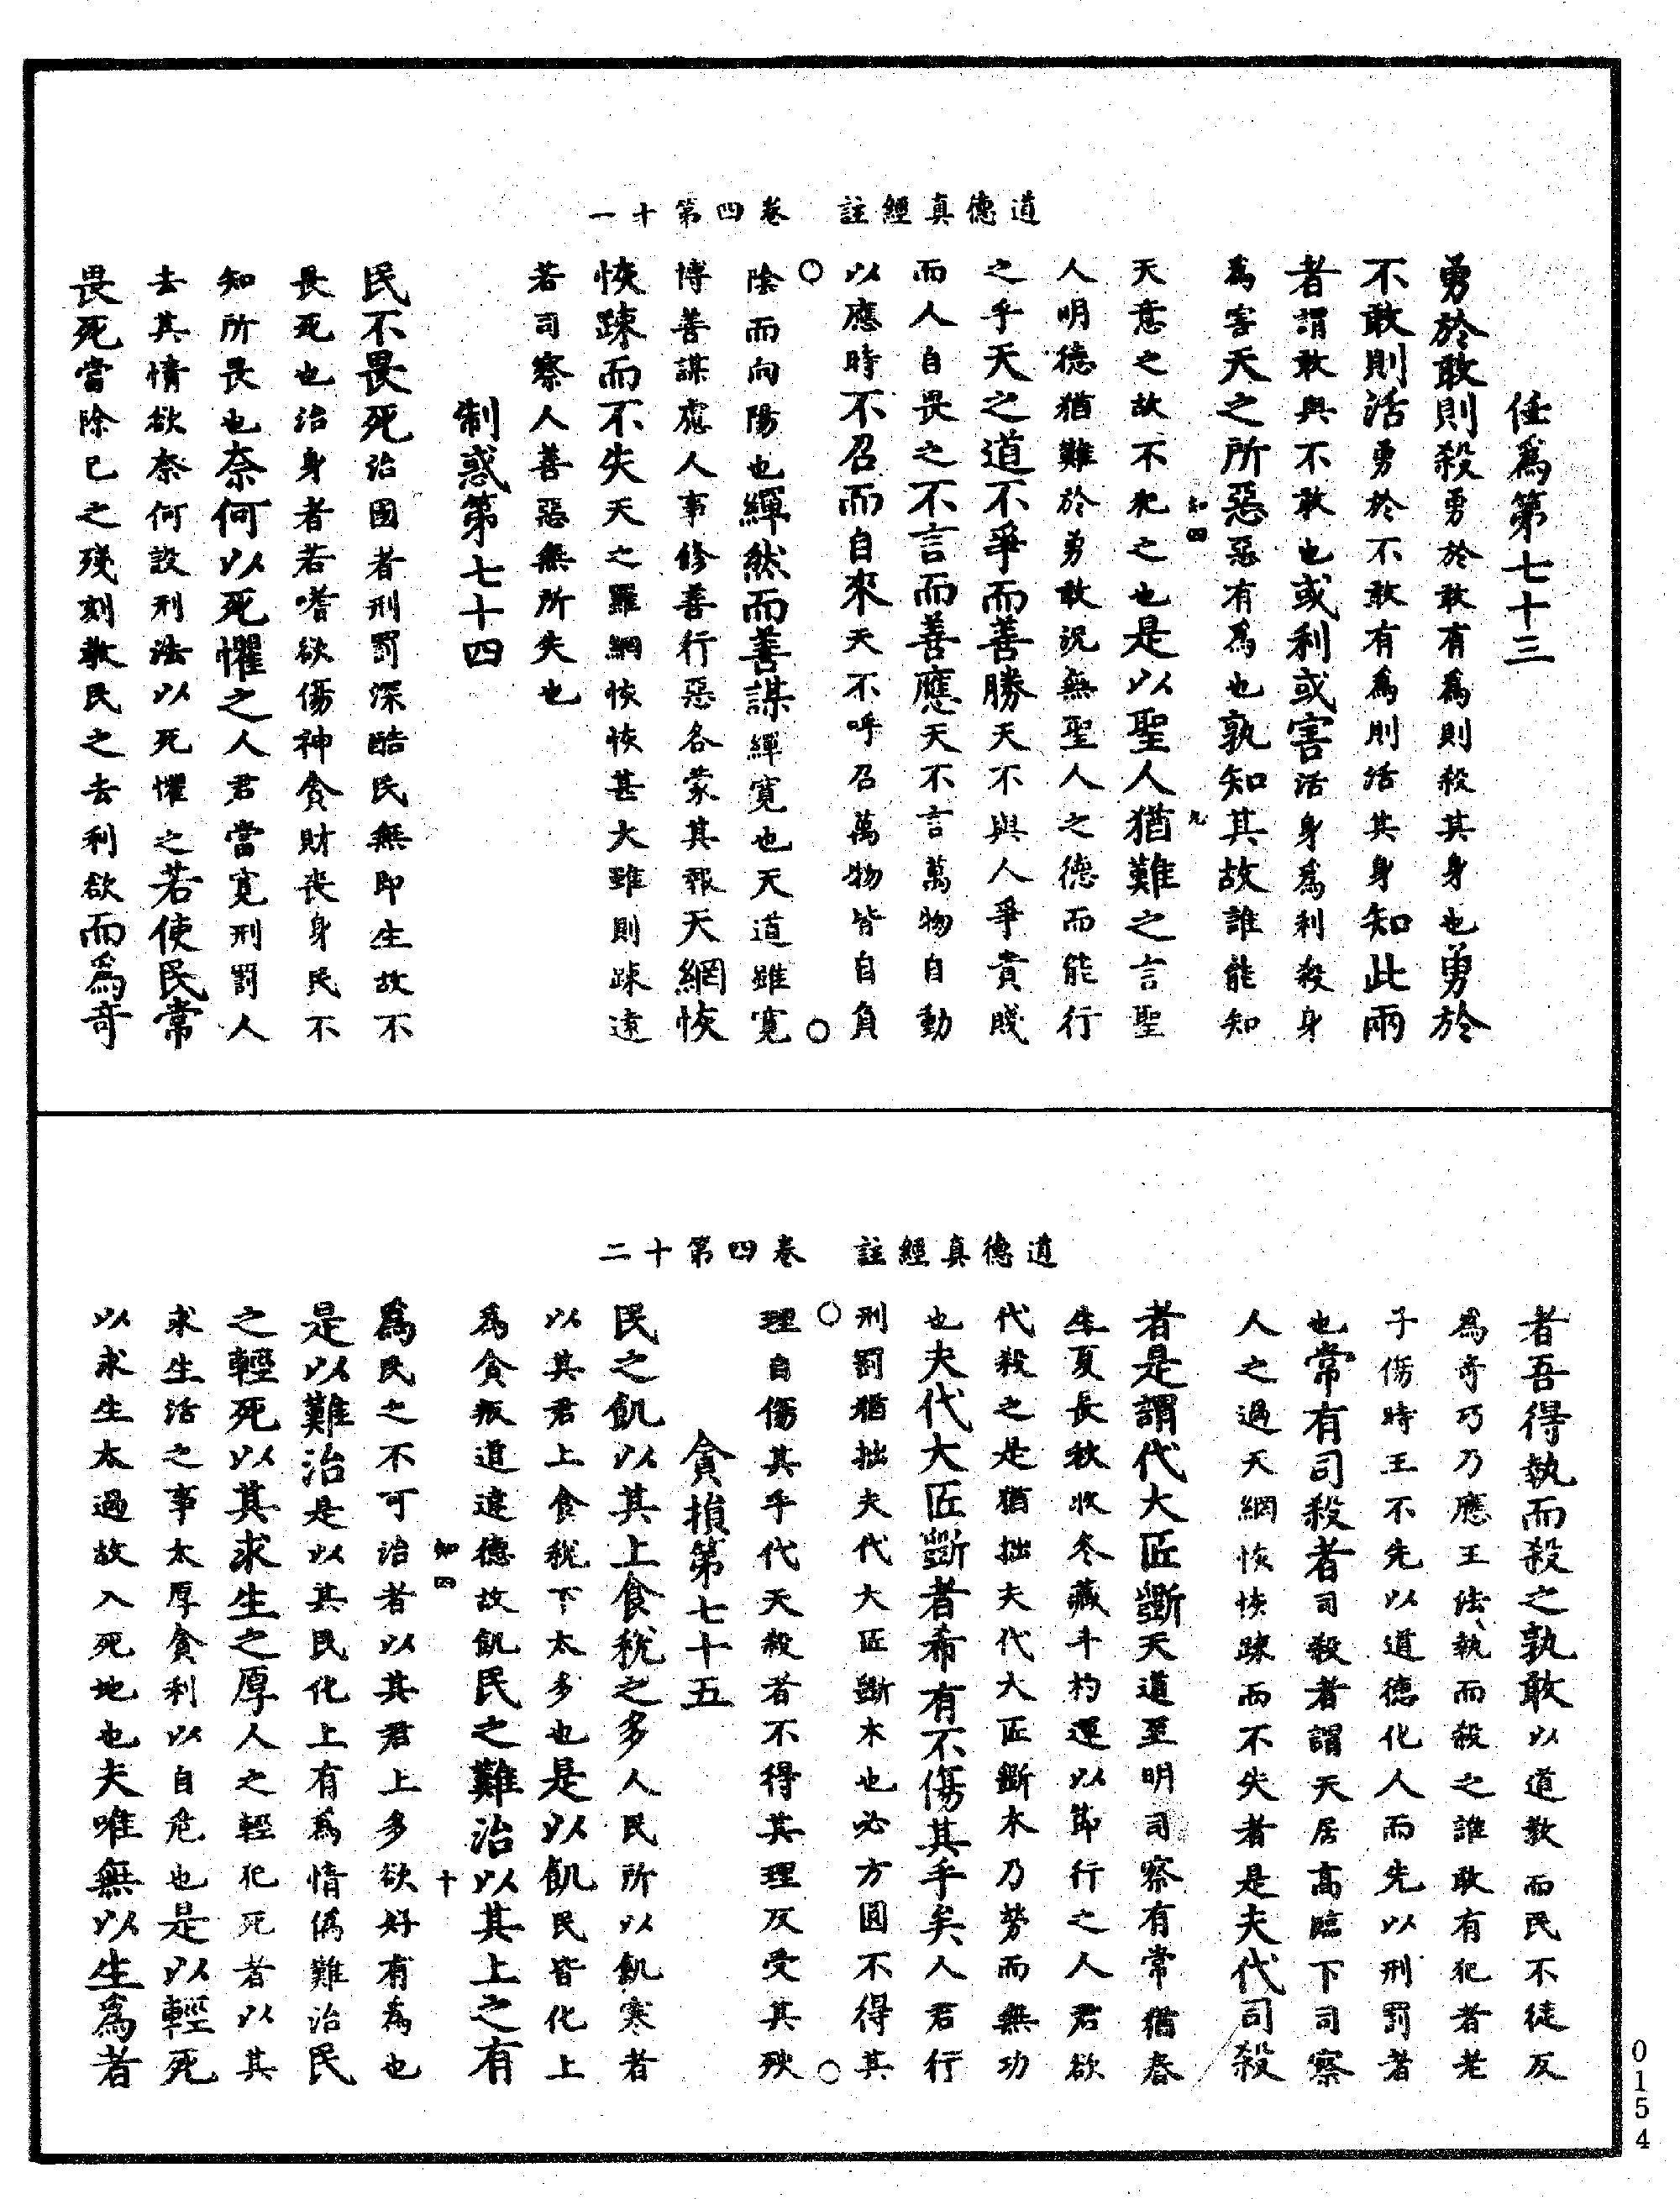 道德真經註　卷四第十一
任爲第七十三
勇於敢則殺勇於敢有爲則殺其身也勇於
不敢則活勇於不敢有爲則活其身知此兩
者謂敢與不敢也或利或害活身爲利殺身
爲害天之所惡惡有爲也孰知其故誰能知
知四　九
天意之故不犯之也是以聖人猶難之言聖
人明德猶難於勇敢況無聖人之德而能行
之乎天之道不爭而善勝天不與人爭貴賤
而人自畏之不言而善應天不言萬物自動
以應時不召而自來天不呼召萬物皆自負
陰而向陽也繟然而善謀繟寬也天道雖寬
博善謀應人事修善行惡各蒙其報天網恢
恢踈而不失天之羅網恢恢甚大雖則踈遠
若司察人善惡無所失也
制惑第七十四
民不畏死治國者刑罰深酷民無卽生故不
畏死也治身者若嗜欲傷神貪財喪身民不
知所畏也奈何以死懼之人君當寬刑罰人
去其情欲奈何設刑法以死懼之若使民常
畏死當除己之殘刻敎民之去利欲而爲奇
道德真經註　卷四第十二
者吾得執而殺之孰敢以道敎而民不徒反
爲奇巧乃應王法執而殺之誰敢有犯者老
子傷時王不先以道德化人而先以刑罰者
也常有司殺者司殺者謂天居高臨下司察
人之過天網恢恢踈而不失者是夫代司殺
者是謂代大匠斵天道至明司察有常猶春
生夏長秋收冬藏斗杓運以節行之人君欲
代殺之是猶拙夫代大匠斵木乃勞而無功
也夫代大匠斵者希有不傷其手矣人君行
刑罰猶拙夫代大匠斵木也必方圓不得其
理自傷其手代天殺者不得其理反受其殃
貪損第七十五
民之飢以其上食稅之多人民所以飢寒者
以其君上食稅下太多也是以飢民皆化上
爲貪叛道違德故飢民之難治以其上之有
知四　十
爲民之不可治者以其君上多欲好有為也
是以難治是以其民化上有爲情僞難治民
之輕死以其求生之厚人之輕犯死者以其
求生活之事太厚貪利以自危也是以輕死
以求生太過故入死地也夫唯無以生爲者
0154